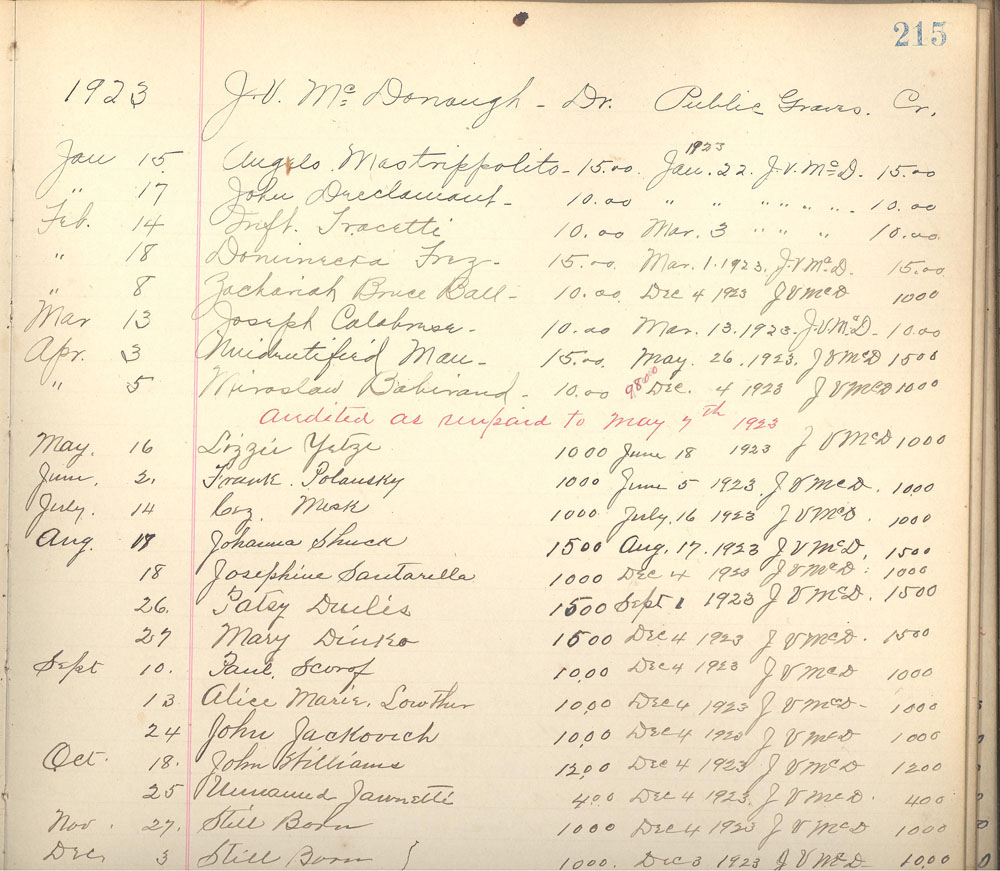 215
1923 J.V. McDonough - Dr. Public Graves. Cr.
1923
Jan 15. Angelo Mastrippolito - 15.00. Jan. 22. J.V. McD. 15.00
" 17 John - 10.00 " " " " " " 10.00
Feb. 14 Inft. Tracetti 10.00 Mar. 3 " " " 10.00.
" 18 - 15.00. Mar. 1. 1923. J.V. McD. 15.00
" 8 Zachariah Bruce Ball - 10.00. Dec 4 1923 J V McD 1000
Mar 13 Joseph Calabrese - 10.00 Mar. 13. 1923. J.V. McD - 10.00
Apr. 3 Unidentified Man - 15.00. May. 26. 1923. J V McD 1500
" 5 Miroslaw - 10.00 98.00 Dec. 4 1923 J V McD 1000
audited as unpaid to May 7th 1923
May. 16 Lizzie 1000 June 18 1923 J V McD 1000
June. 2. Frank. Polansky 1000 June 5 1923. J V McD. 1000
July. 14 Misk 1000 July. 16 1923 J V McD. 1000
Aug. 17 Johanna Shuck 1500 Aug. 17. 1923 J V McD. 1500
18 Josephine Santarella 1000 Dec 4 1923 J V McD. 1000
26. Patsy 1500 Sept 1 1923 J V McD. 1500
27 Mary Dinko 1500 Dec 4 1923 J V McD. 1500
Sept 10. Paul. Scorof 10.00 Dec 4 1923 J V McD 1000
13 Alice Marie. Lowther 10.00 Dec 4 1923 J V McD - 1000
24 John Jackovich 10.00 Dec 4 1923 J V McD 1000
Oct. 18. John Williams 12.00 Dec 4 1923 J V McD 1200
25 Unnamed Jannetti 4.00 Dec 4 1923. J V McD. 400
Nov. 27. Still Born 1000 Dec 4 1923 J V McD 1000
Dec. 3 Still Born 1000. Dec 3 1923 J V McD - 10.00